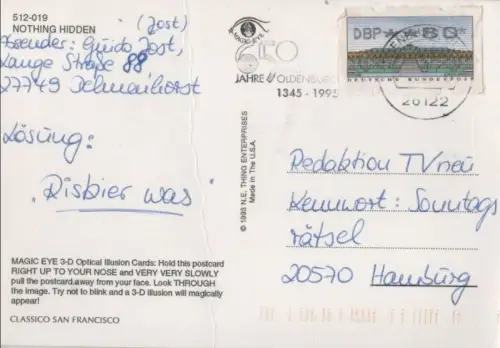 512-019
NOTHING HIDDEN
(Jost)
Absender: Guido Jost,
Lange Straße 88
27749 Delmenhorst
Lösung:
"Risbier was"
MAGIC EYE 3-D Optical Illusion Cards: Hold this postcard
RIGHT UP TO YOUR NOSE and VERY VERY SLOWLY
pull the postcard away from your face. Look THROUGH
the image. Try not to blink and a 3-D illusion will magically
appear!
CLASSICO SAN FRANCISCO
MAGIC EYE
© 1993 N.E. THING ENTERPRISES
Made in The U.S.A.
650
JAHRE OLDENBURG
1345 - 1995
DBP * * 80 *
DEUTSCHE BUNDESPOST
26122
Redaktion TV neu
Kennwort: Sonntags
rätsel
20570 Hamburg